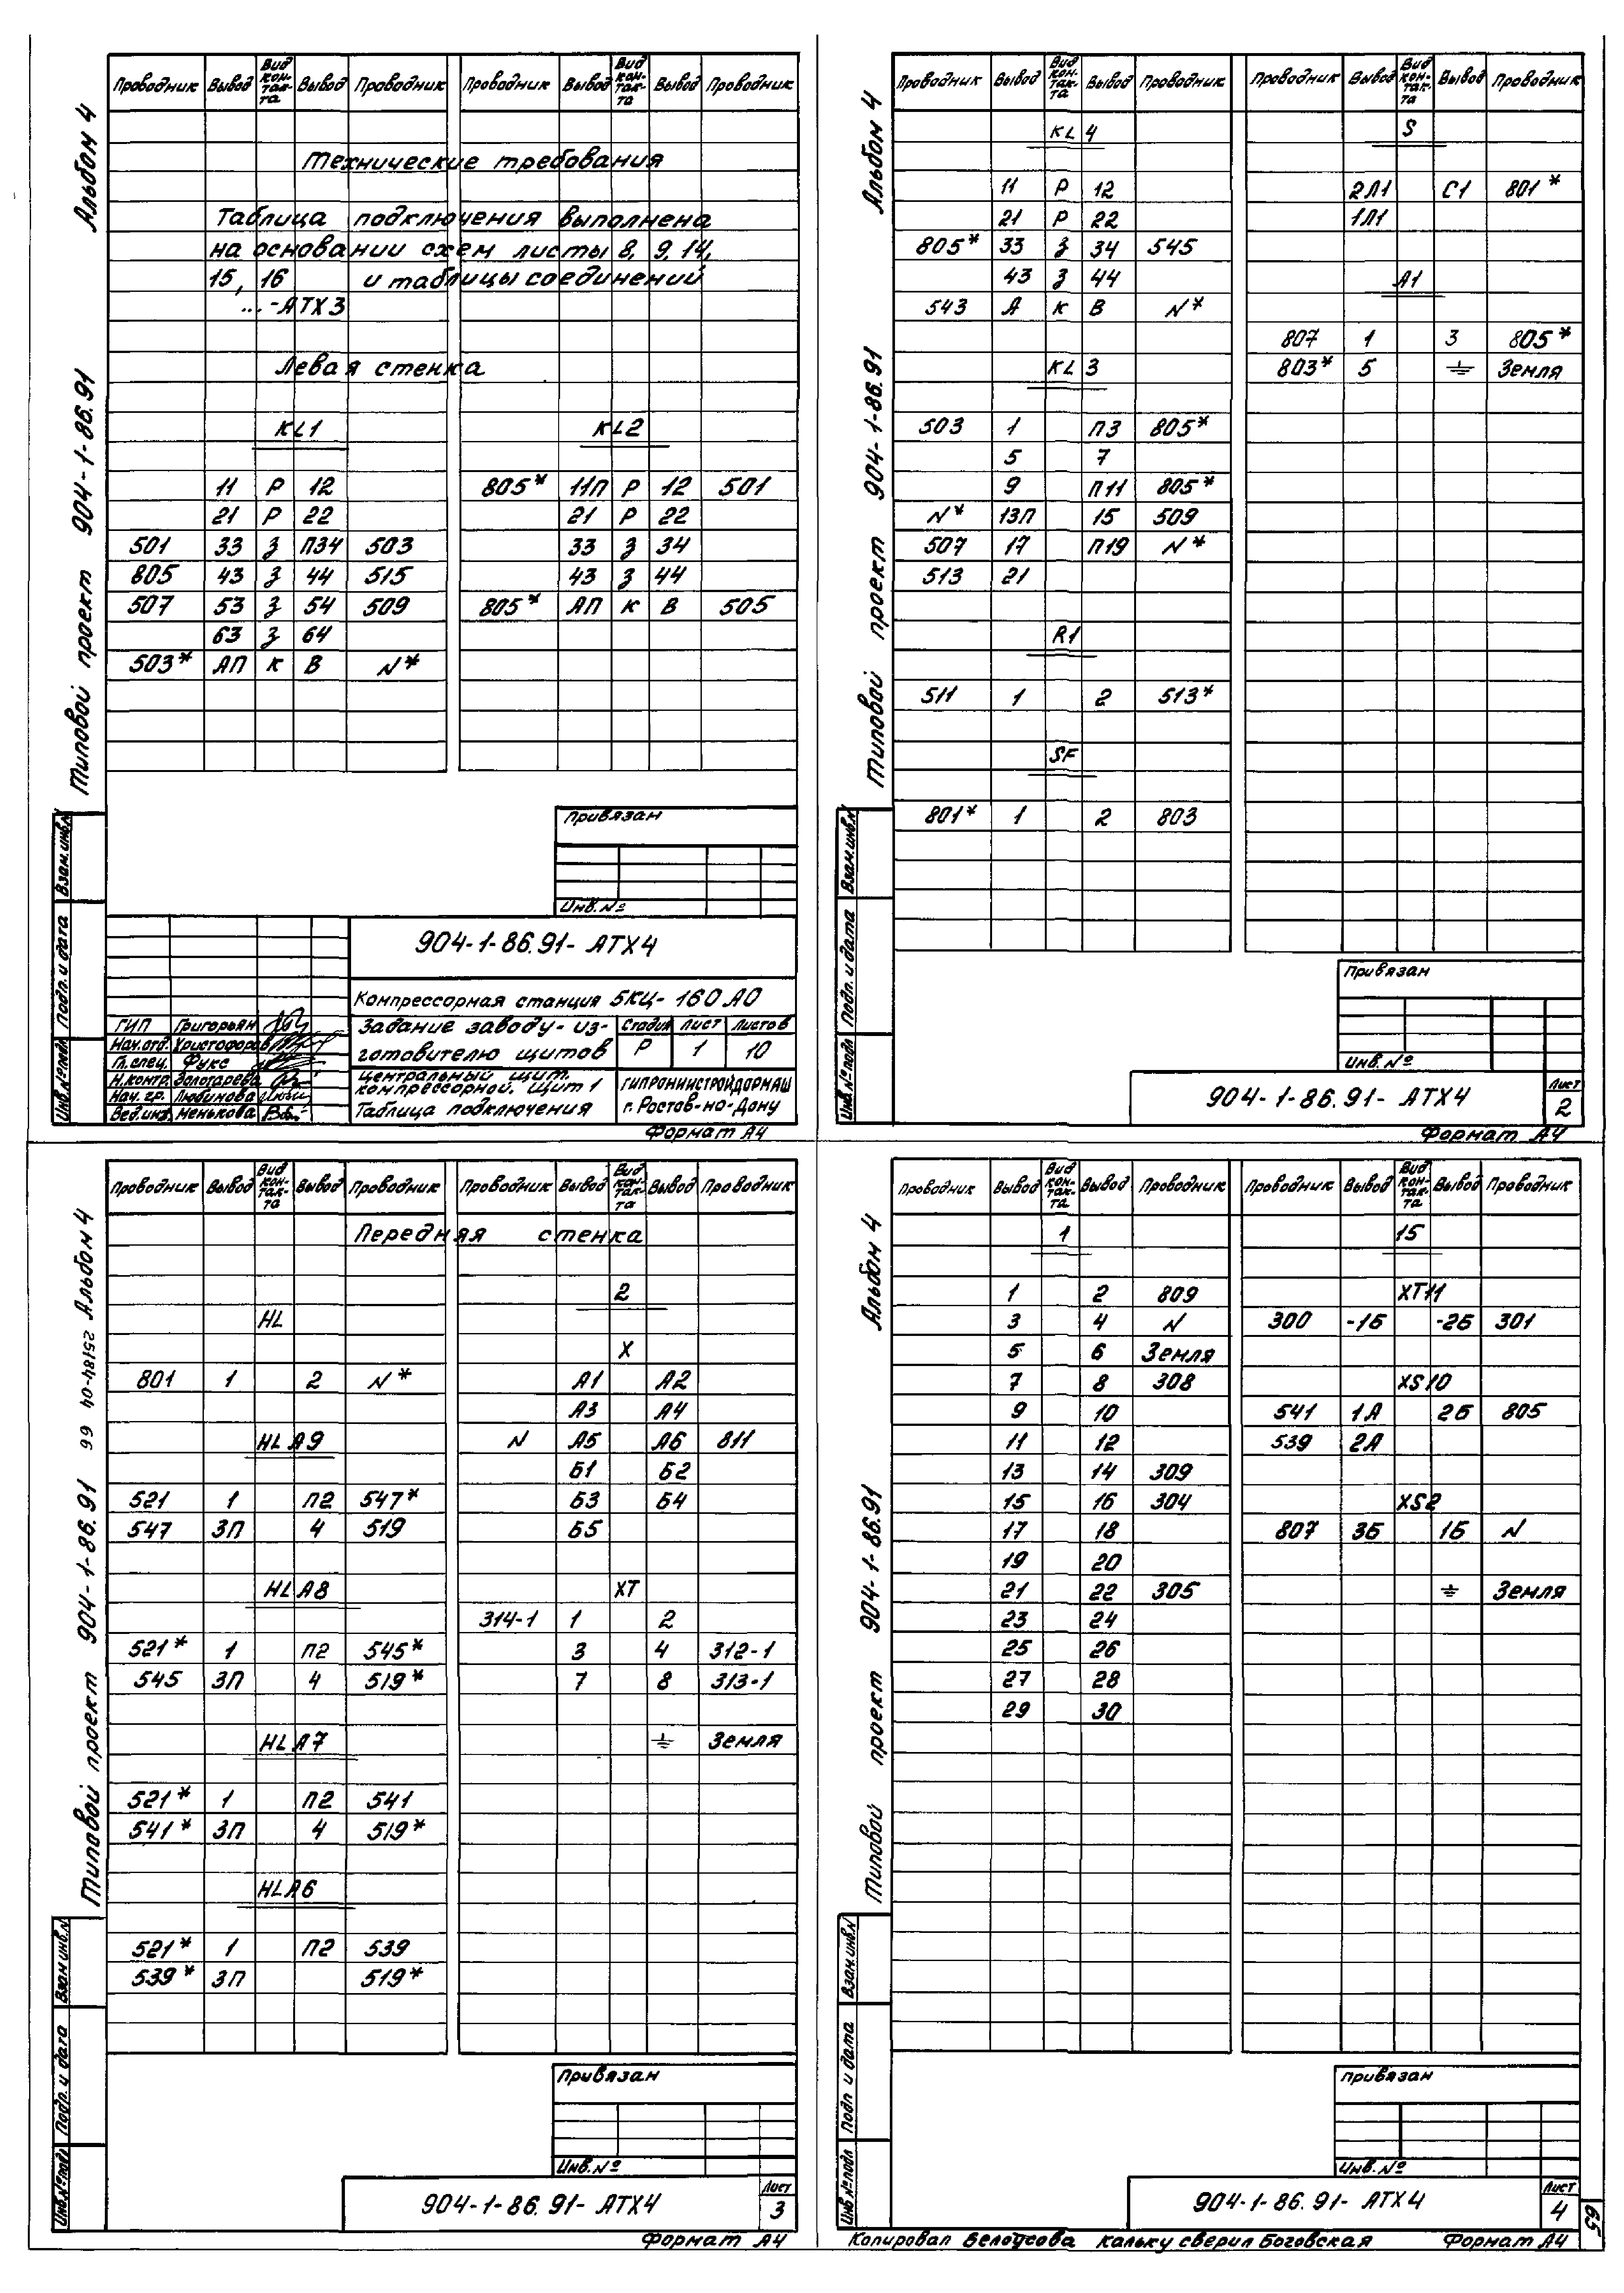 Альбом 4
Типовой проект 904-1-86.91
Проводник Вывод Вид контакта Вывод Проводник Проводник Вывод Вид контакта Вывод Проводник
Технические требования
Таблица подключения выполнена
на основании схем листы 8, 9, 14,
15, 16 и таблицы соединений
...-АТХ3
Левая стенка
KL1 KL2
11 Р 12 805* 11П Р 12 501
21 Р 22 21 Р 22
501 33 З П34 503 33 З 34
805 43 З 44 515 43 З 44
507 53 З 54 509 805* АП К В 505
63 З 64
503* АП К В N*
Привязан
Инв. №
904-1-86.91-АТХ4
Компрессорная станция 5КЦ-160АО
Задание заводу-из-
готовителю щитов
Стадия Лист Листов
Р 1 10
Центральный щит
компрессорной. Щит 1
Таблица подключения
ГИПРОНИИСТРОЙДОРМАШ
г. Ростов-на-Дону
ГИП Григорьян
Нач.отд. Христофоров
Гл.спец. Фукс
Н.контр. Золотарева
Нач. гр. Любимова
Вед.инж. Менькова
Взам.инв.N
Подп. и дата
Инв.№подл
Формат А4
Альбом 4
Типовой проект 904-1-86.91
Проводник Вывод Вид контакта Вывод Проводник Проводник Вывод Вид контакта Вывод Проводник
KL4 S
11 Р 12 2Л1 С1 801*
21 Р 22 1Л1
805* 33 З 34 545
43 З 44 А1
543 А К В N*
807 1 3 805*
KL3 803* 5 ⏚ Земля
503 1 П3 805*
5 7
9 П11 805*
N* 13П 15 509
507 17 П19 N*
513 21
R1
511 1 2 513*
SF
801* 1 2 803
Привязан
Инв. №
904-1-86.91-АТХ4
Лист
2
Взам.инв.N
Подп. и дата
Инв.№подл
Формат А4
25184-04 66
Альбом 4
Типовой проект 904-1-86.91
Проводник Вывод Вид контакта Вывод Проводник Проводник Вывод Вид контакта Вывод Проводник
Передняя стенка
2
HL
X
801 1 2 N* А1 А2
А3 А4
HLA9 N А5 А6 811
Б1 Б2
521 1 П2 547* Б3 Б4
547 3П 4 519 Б5
HLA8 XT
314-1 1 2
521* 1 П2 545* 3 4 312-1
545 3П 4 519* 7 8 313-1
HLA7 ⏚ Земля
521* 1 П2 541
541* 3П 4 519*
HLA6
521* 1 П2 539
539* 3П 519*
Привязан
Инв. №
904-1-86.91-АТХ4
Лист
3
Взам.инв.N
Подп. и дата
Инв.№подл
Формат А4
Альбом 4
Типовой проект 904-1-86.91
Проводник Вывод Вид контакта Вывод Проводник Проводник Вывод Вид контакта Вывод Проводник
1 15
1 2 809 XT11
3 4 N 300 -1Б -2Б 301
5 6 Земля
7 8 308 XS10
9 10 541 1А 2Б 805
11 12 539 2А
13 14 309
15 16 304 XS2
17 18 807 3Б 1Б N
19 20
21 22 305 ⏚ Земля
23 24
25 26
27 28
29 30
Привязан
Инв. №
904-1-86.91-АТХ4
Лист
4
65
Взам.инв.N
Подп и дата
Инв.№подл
Копировал Белоусова Кальку сверил Боговская Формат А4